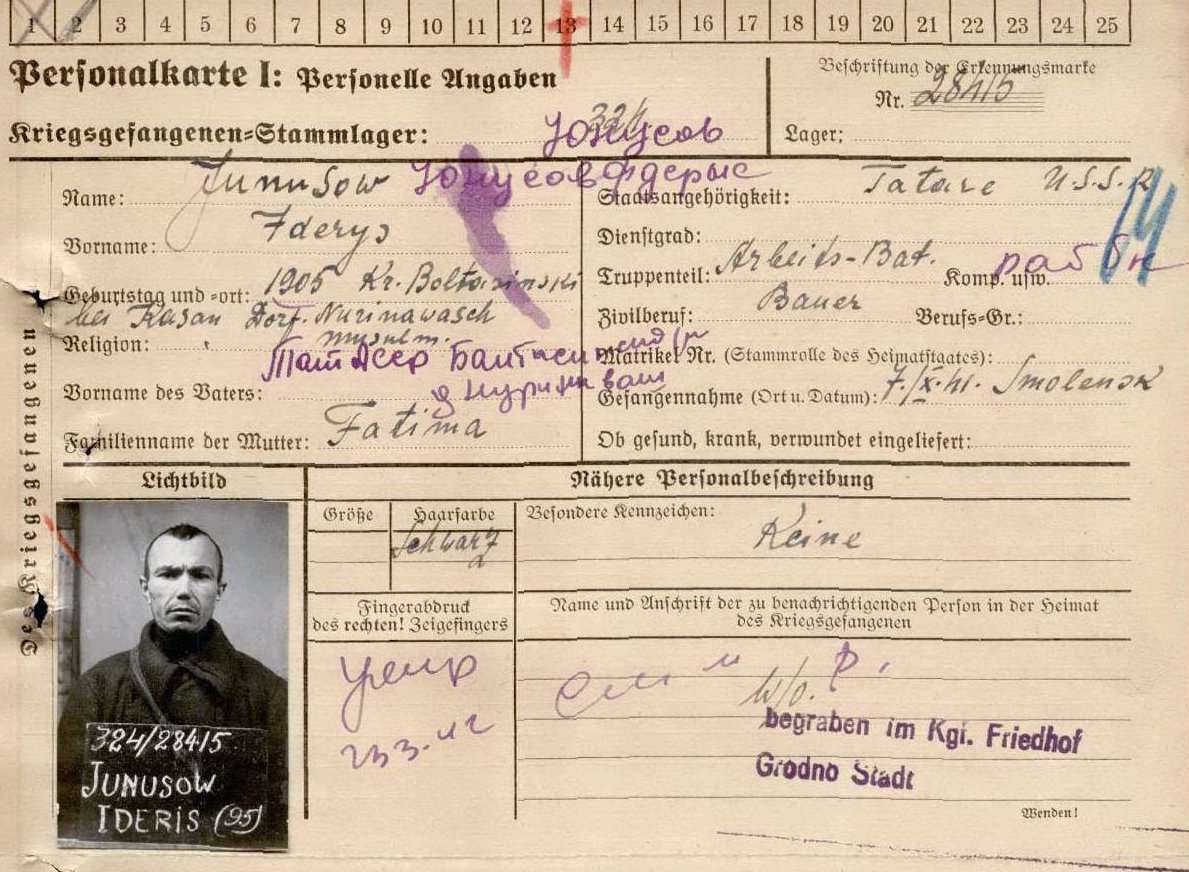 1 2 3 4 5 6 7 8 9 10 11 12 13 14 15 16 17 18 19 20 21 22 23 24 25
Personalkarte I: Personelle Angaben
Beschriftung der Erkennungsmarke
Nr. 28415
Kriegsgefangenen-Stammlager: 324
Юнусов
Lager:
Name: Junusow
Юнусов Идерыс
Staatsangehörigkeit: Tatare U.S.S.R.
Vorname: Iderys
Dienstgrad:
Truppenteil: Arbeits-Bat. Komp. usw.
рабоч
Geburtstag und -ort: 1905 Kr. Boltasinski
bei Kasan Dorf. Nurinawasch
Zivilberuf: Bauer Berufs-Gr.:
Religion: musulm.
Тат АССР
Matrikel Nr. (Stammrolle des Heimatstaates):
Vorname des Vaters:
Gefangennahme (Ort u. Datum): 7./IX.41. Smolensk
Familienname der Mutter: Fatima
Ob gesund, krank, verwundet eingeliefert:
Des Kriegsgefangenen
Lichtbild
Nähere Personalbeschreibung
Größe
Haarfarbe
Schwarz
Besondere Kennzeichen:
Keine
Fingerabdruck
des rechten! Zeigefingers
Name und Anschrift der zu benachrichtigenden Person in der Heimat
des Kriegsgefangenen
умер
23 3. 42
см и р.
w/o.
begraben im Kgf. Friedhof
Grodno Stadt
324/28415
JUNUSOW
IDERIS (95)
Wenden!